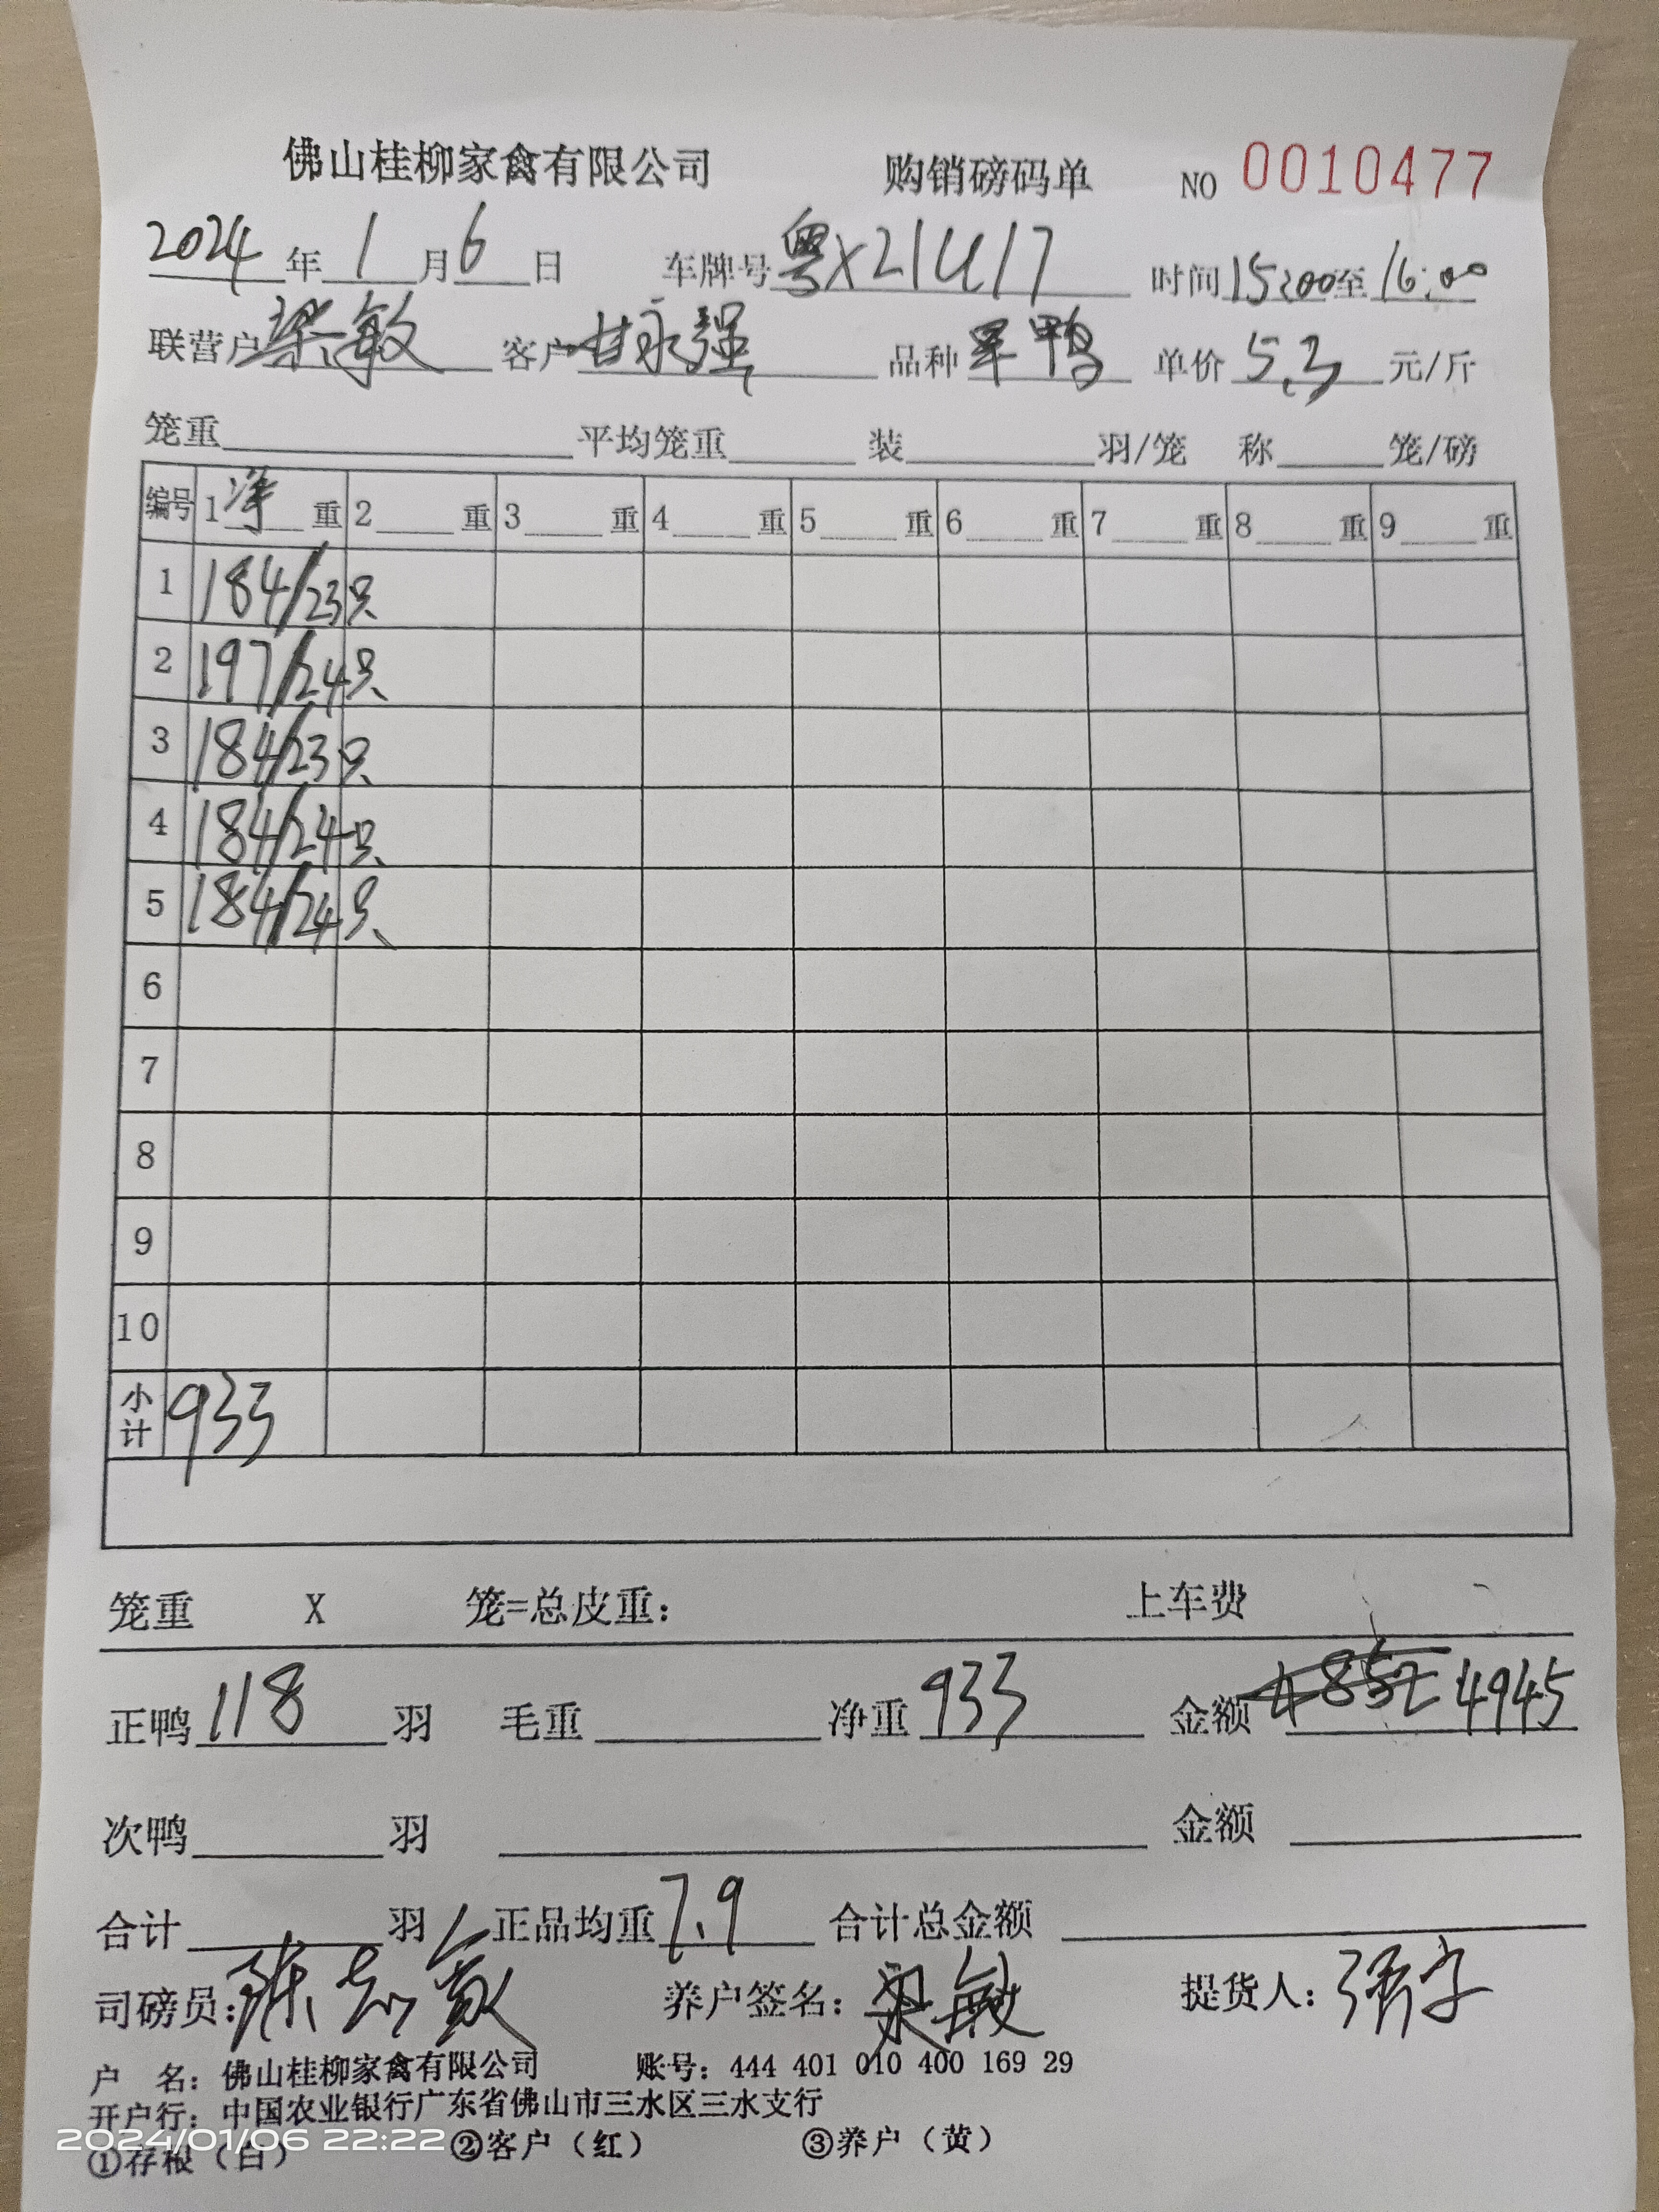 佛山桂柳家禽有限公司 购销磅码单 NO 0010477
2024年1月6日 车牌号粤X21U17 时间15:00至16:00
联营户梁敏 客户甘永强 品种 鸭 单价5.3元/斤
笼重 平均笼重 装 羽/笼 称 笼/磅
编号 1净重 2 重 3 重 4 重 5 重 6 重 7 重 8 重 9 重
1 184/23只
2 197/24只
3 184/23只
4 184/24只
5 184/24只
6
7
8
9
10
小计 933
笼重 X 笼=总皮重: 上车费
正鸭118羽 毛重 净重933 金额4852 4945
次鸭 羽 金额
合计 羽 正品均重7.9 合计总金额
司磅员: 养户签名:梁敏 提货人:
户 名:佛山桂柳家禽有限公司 账号:444 401 010 400 169 29
开户行:中国农业银行广东省佛山市三水区三水支行
①存根(白) ②客户(红) ③养户(黄)
2024/01/06 22:22